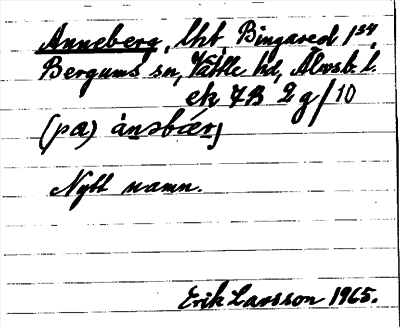 Anneberg, lht, Bingared 1²⁴,
Bergums sn, Vättle hd, Älvsb. l.
ek 7B 2g/10
(pa) ànəbǽrj
Nytt namn.
Erik Larsson 1965.